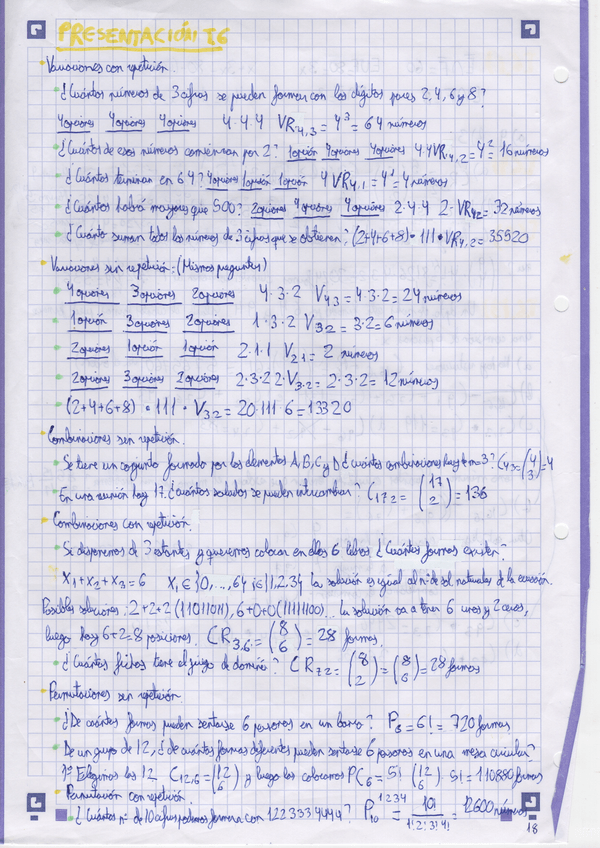 PRESENTACIÓN T6
Variaciones con repetición.
¿Cuántos números de 3 cifras se pueden formar con los dígitos pares 2, 4, 6 y 8?
4 opciones 4 opciones 4 opciones 4·4·4 VR4,3 = 4³ = 64 números
¿Cuántos de esos números comienzan por 2? 1 opción 4 opciones 4 opciones 4·4 VR4,2 = 4² = 16 números
¿Cuántos terminan en 64? 4 opciones 1 opción 1 opción 4 VR4,1 = 4¹ = 4 números
¿Cuántos habrá mayores que 500? 2 opciones 4 opciones 4 opciones 2·4·4 2·VR4,2 = 32 números
¿Cuánto suman todos los números de 3 cifras que se obtienen? (2+4+6+8)·111·VR4,2 = 35520
Variaciones sin repetición: (Mismas preguntas)
4 opciones 3 opciones 2 opciones 4·3·2 V4,3 = 4·3·2 = 24 números
1 opción 3 opciones 2 opciones 1·3·2 V3,2 = 3·2 = 6 números
2 opciones 1 opción 1 opción 2·1·1 V2,1 = 2 números
2 opciones 3 opciones 2 opciones 2·3·2 2·V3,2 = 2·3·2 = 12 números
(2+4+6+8)·111·V3,2 = 20·111·6 = 13320
Combinaciones sin repetición.
Se tiene un conjunto formado por los elementos A, B, C y D ¿cuántas combinaciones hay m=3? C4,3 = (4 3) = 4
En una reunión hay 17. ¿cuántos saludos se pueden intercambiar? C17,2 = (17 2) = 136
Combinaciones con repetición.
Si disponemos de 3 estantes y queremos colocar en ellos 6 libros ¿Cuántas formas existen?
X1+X2+X3=6 Xi∈{0,...,6} i∈{1,2,3} La solución es igual al nº de sol naturales de la ecuación.
Posibles soluciones: 2+2+2 (11011011), 6+0+0 (11111100)... La solución va a tener 6 unos y 2 ceros,
luego hay 6+2=8 posiciones. CR3,6 = (8 6) = 28 formas.
¿Cuántas fichas tiene el juego de dominó? CR7,2 = (8 2) = (8 6) = 28 formas
Permutaciones sin repetición.
¿De cuántas formas pueden sentarse 6 personas en un banco? P6 = 6! = 720 formas
De un grupo de 12, ¿de cuántas formas diferentes pueden sentarse 6 personas en una mesa circular?
1º Elegimos los 12 C12,6 = (12 6) y luego los colocamos PC6 = 5! (12 6)·5! = 110880 formas
Permutación con repetición.
¿Cuántos nº de 10 cifras podemos formar con 1223334444? P10 1234 = 10! / 1!·2!·3!·4! = 12600 números
18